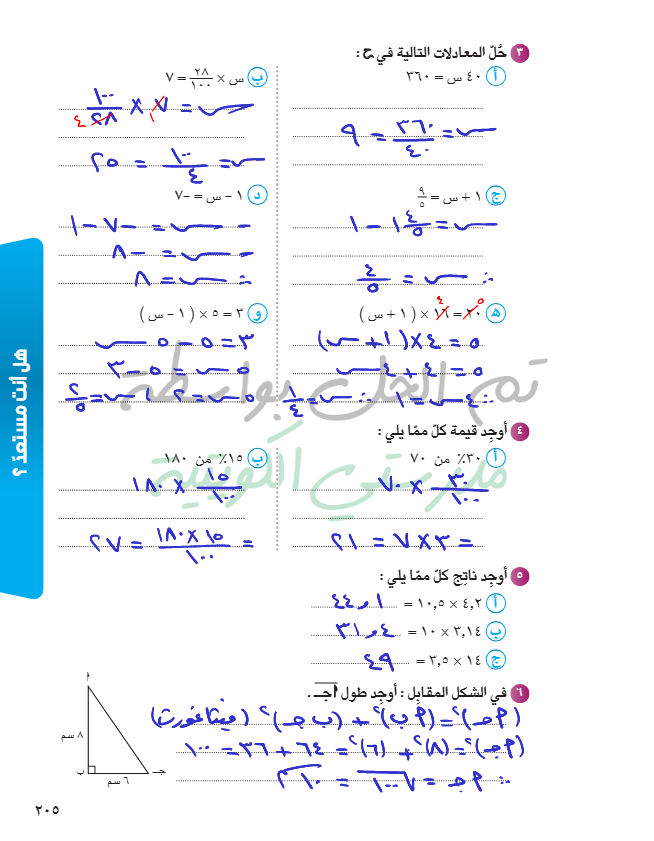 ٣ حُلّ المعادلات التالية في ح :
أ ٤٠ س = ٣٦٠
س = ٣٦٠/٤٠ = ٩
ب س × ٢٨/١٠٠ = ٧
س = ٧ × ١٠٠/٢٨
١ ٤
س = ١٠٠/٤ = ٢٥
ج ١ + س = ٩/٥
س = ١ ٤/٥ - ١
∴ س = ٤/٥
د ١ - س = -٧
- س = -٧ - ١
- س = -٨
∴ س = ٨
ه ٢٠ = ١٦ × ( ١ + س )
٥ ٤
٥ = ٤ × (١ + س)
٥ = ٤ + ٤ س
∴ ٤ س = ١ ∴ س = ١/٤
و ٣ = ٥ × ( ١ - س )
٣ = ٥ - ٥ س
٥ س = ٥ - ٣
٥ س = ٢ س = ٢/٥
تم الحل بواسطة
مدرستي الكويتية
٤ أوجِد قيمة كلّ ممّا يلي :
أ ٣٠٪ من ٧٠
٣٠/١٠٠ × ٧٠
= ٣ × ٧ = ٢١
ب ١٥٪ من ١٨٠
١٥/١٠٠ × ١٨٠
= ١٥ × ١٨٠/١٠٠ = ٢٧
٥ أوجِد ناتِج كلّ ممّا يلي :
أ ٤,٢ × ١٠,٥ = ٤٤,١
ب ٣,١٤ × ١٠ = ٣١,٤
ج ١٤ × ٣,٥ = ٤٩
٦ في الشكل المقابِل : أوجِد طول أجـ .
(أجـ)² = (أب)² + (ب جـ)² (فيثاغورث)
(أجـ)² = (٨)² + (٦)² = ٦٤ + ٣٦ = ١٠٠
∴ أجـ = √١٠٠ = ١٠
أ
٨ سم
ب
٦ سم
جـ
هل أنت مستعدّ ؟
٢٠٥